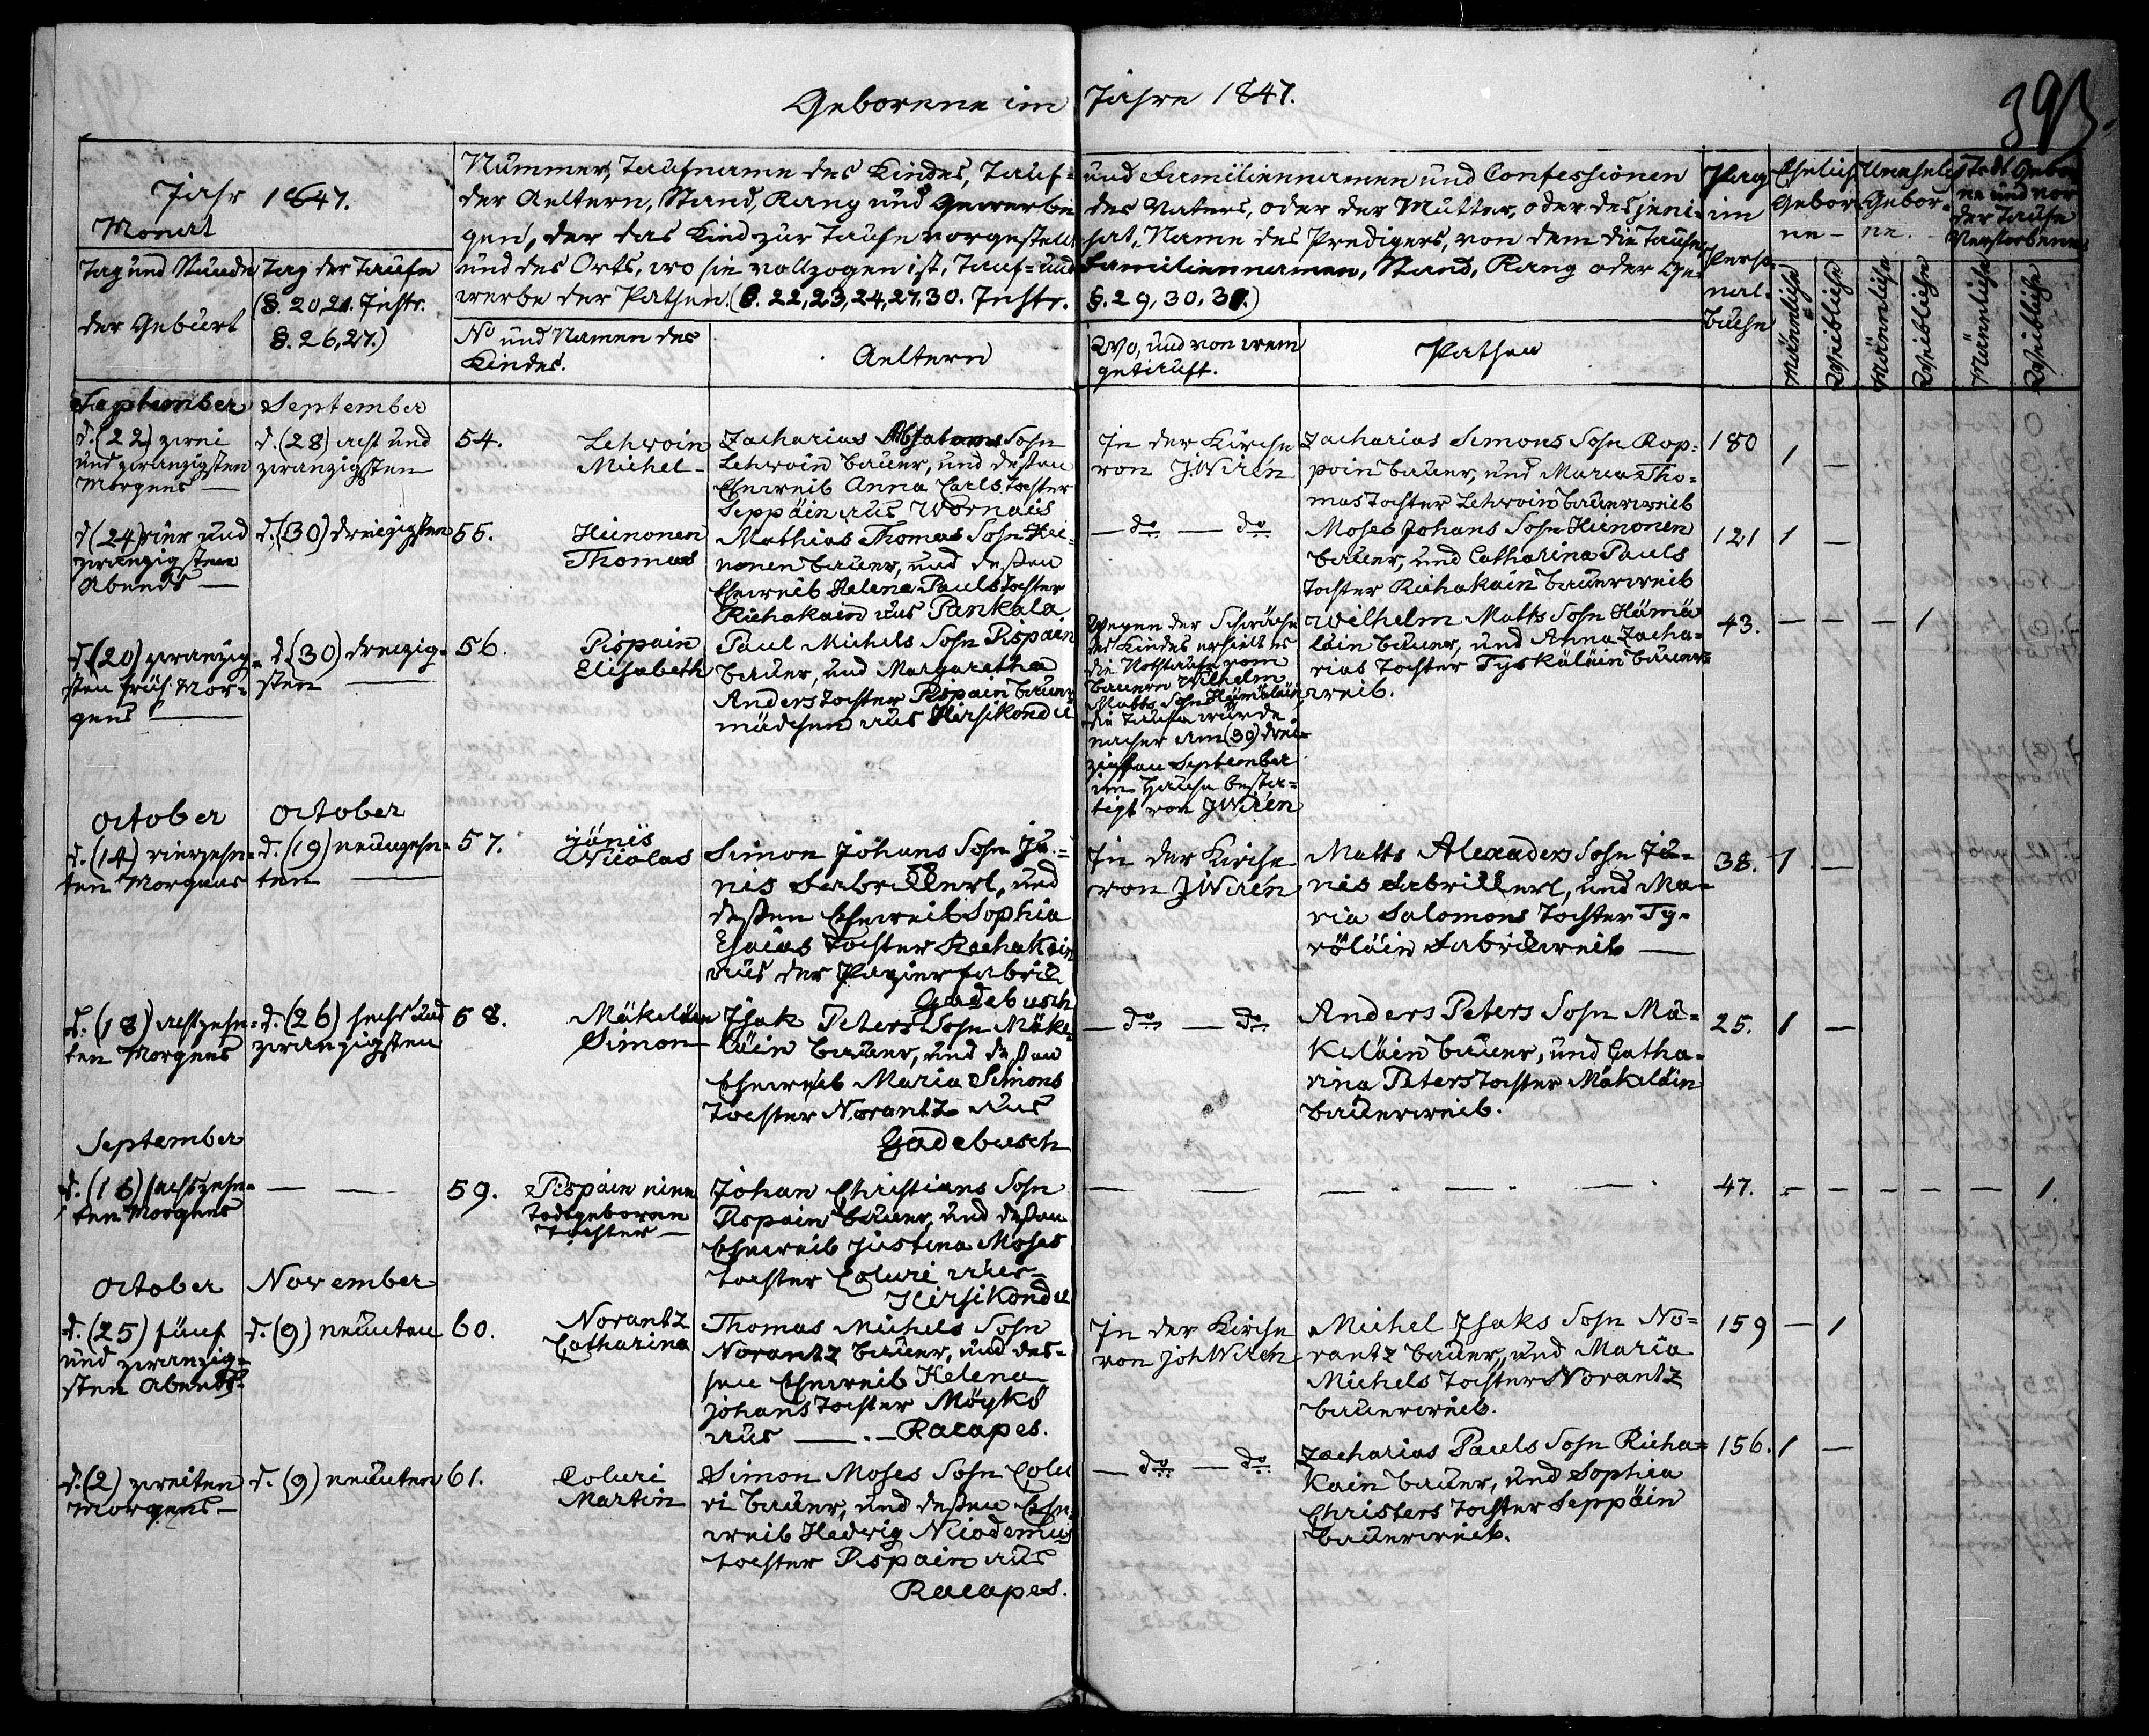 Geborene im Jahre 1847.
393.
Jahr 1847.
Monat
Tag und Stunde
der Geburt
Tag der Taufe
(§. 20,21. Instr.
§. 26,27.)
Nummer, Taufname des Kindes, Tauf= und Familiennamen und Confessionen
der Aeltern, Stand, Rang und Gewerbe des Vaters, oder der Mutter, oder desjeni=
gen, der das Kind zur Taufe vorgestellt hat, Name des Predigers, von dem die Taufe
und des Orts, wo sie vollzogen ist, Tauf= und Familiennamen, Stand, Rang oder Ge=
werbe der Pathen. (§. 22,23,24,27.30. Instr. §. 29,30,31.)
No und Namen des
Kindes.
Aeltern
Wo, und von wem
getauft.
Pathen
Pag
im
Perso=
nal=
buche
Ehelich
Gebor
ne
Unehelich
Gebor=
ne.
Todt Gebor
ne und vor
der Taufe
Verstorbene
Männliche
Weibliche
Männliche
Weibliche
Männliche
Weibliche
September
d. (22) zwei
und zwanzigsten
Morgens —
September
d. (28) acht und
zwanzigsten
54.
Lehwoin
Michel —
Zacharias Absaloms Sohn
Lehwoin Bauer, und deßen
Eheweib Anna Carls tochter
Seppäin aus Wornais
In der Kirche
von J. Wiren
Zacharias Simons Sohn Rop=
poin Bauer, und Maria Tho=
mas Tochter Lehwoin Bauerweib
180
1 —
d (24) vier und
zwanzigsten
Abends —
d. (30) dreizigsten
55.
Hienonen
Thomas
Mathias Thomas Sohn Hie=
nonen Bauer, und deßen
Eheweib Helena Pauls tochter
Riehakain aus Pankala
— do — do
Moses Johans Sohn Hienonen
Bauer, und Catharina Pauls
Tochter Riehakain Bauerweib
121
1 —
d. (20) zwanzig=
sten früh Mor=
gens —
d. (30) dreizig=
sten —
56.
Pispain
Elisabeth
Paul Michels Sohn Pispain
Bauer, und Margaretha
Anders tochter Pispain Bauer
mädchen aus Hirsikondu
Wegen der Schwäche
des Kindes erhielt es
die Nothtaufe vom
Bauern Wilhelm
Matts Sohn Hämäläin,
die Taufe wurde
nacher am (30) drei=
zigsten September
im Hause bestä=
tigt von J Wiren
Wilhelm Matts Sohn Hämä
läin Bauer, und Anna Zacha=
rias Tochter Tyskäläin Bauer=
weib.
43.
— — — 1
October
d. (14) vierzehn=
ten Morgens
October
d. (19) neunzehn=
ten —
57.
Jänis
Nicolas
Simon Johans Sohn Jä=
nis Fabrikkerl, und
deßen Eheweib Sophia
Esaias Tochter Rachakain
aus der Papierfabrik
Gadebusch
In der Kirche
von J Wiren
Matts Alexaders Sohn Jä=
nis Fabrikkerl, und Ma=
ria Salomons Tochter Ty=
röläin Fabrikweib —
38.
1 —
d. (18) achtzehn=
ten Morgens
d. (26) sechs und
zwanzigsten
58.
Mäkeläin
Simon
Isak Peters Sohn Mäke
läin Bauer, und deßen
Eheweib Maria Simons
Tochter Norantz aus
Gadebusch
— do — do
Anders Peters Sohn Mä=
keläin Bauer, und Catha=
rina Peters tochter Mäkeläin
Bauerweib.
25.
1 —
September
d. (16) sechszehn=
ten Morgens
— —
59.
Pispain eine
todtgeboren
Tochter —
Johan Christians Sohn
Pispain Bauer, und deßen
Eheweib Justina Moses
tochter Coluri aus
Hirsikondu
— — — — —
47.
— — — — — 1.
October
d. (25) fünf
und zwanzig=
sten Abends
November
d. (9) neunten
60.
Norantz
Catharina
Thomas Michels Sohn
Norantz Bauer, und des=
sen Eheweib Helena
Johans tochter Möykö
aus — . — Racapes.
In der Kirche
von Joh Wiren
Michel Isaks Sohn No=
rantz Bauer, und Maria
Michels tochter Norantz
Bauerweib.
159
— 1
d. (2) zweiten
Morgens —
d. (9) neunten
61.
Coluri
Martin
Simon Moses Sohn Colu
ri Bauer, und deßen Ehe=
weib Hedwig Nicodemus
tochter Pispain aus
Racapes.
— do — do
Zacharias Pauls Sohn Rieha=
kain Bauer, und Sophia
Christers Tochter Seppäin
Bauerweib.
156.
1 —